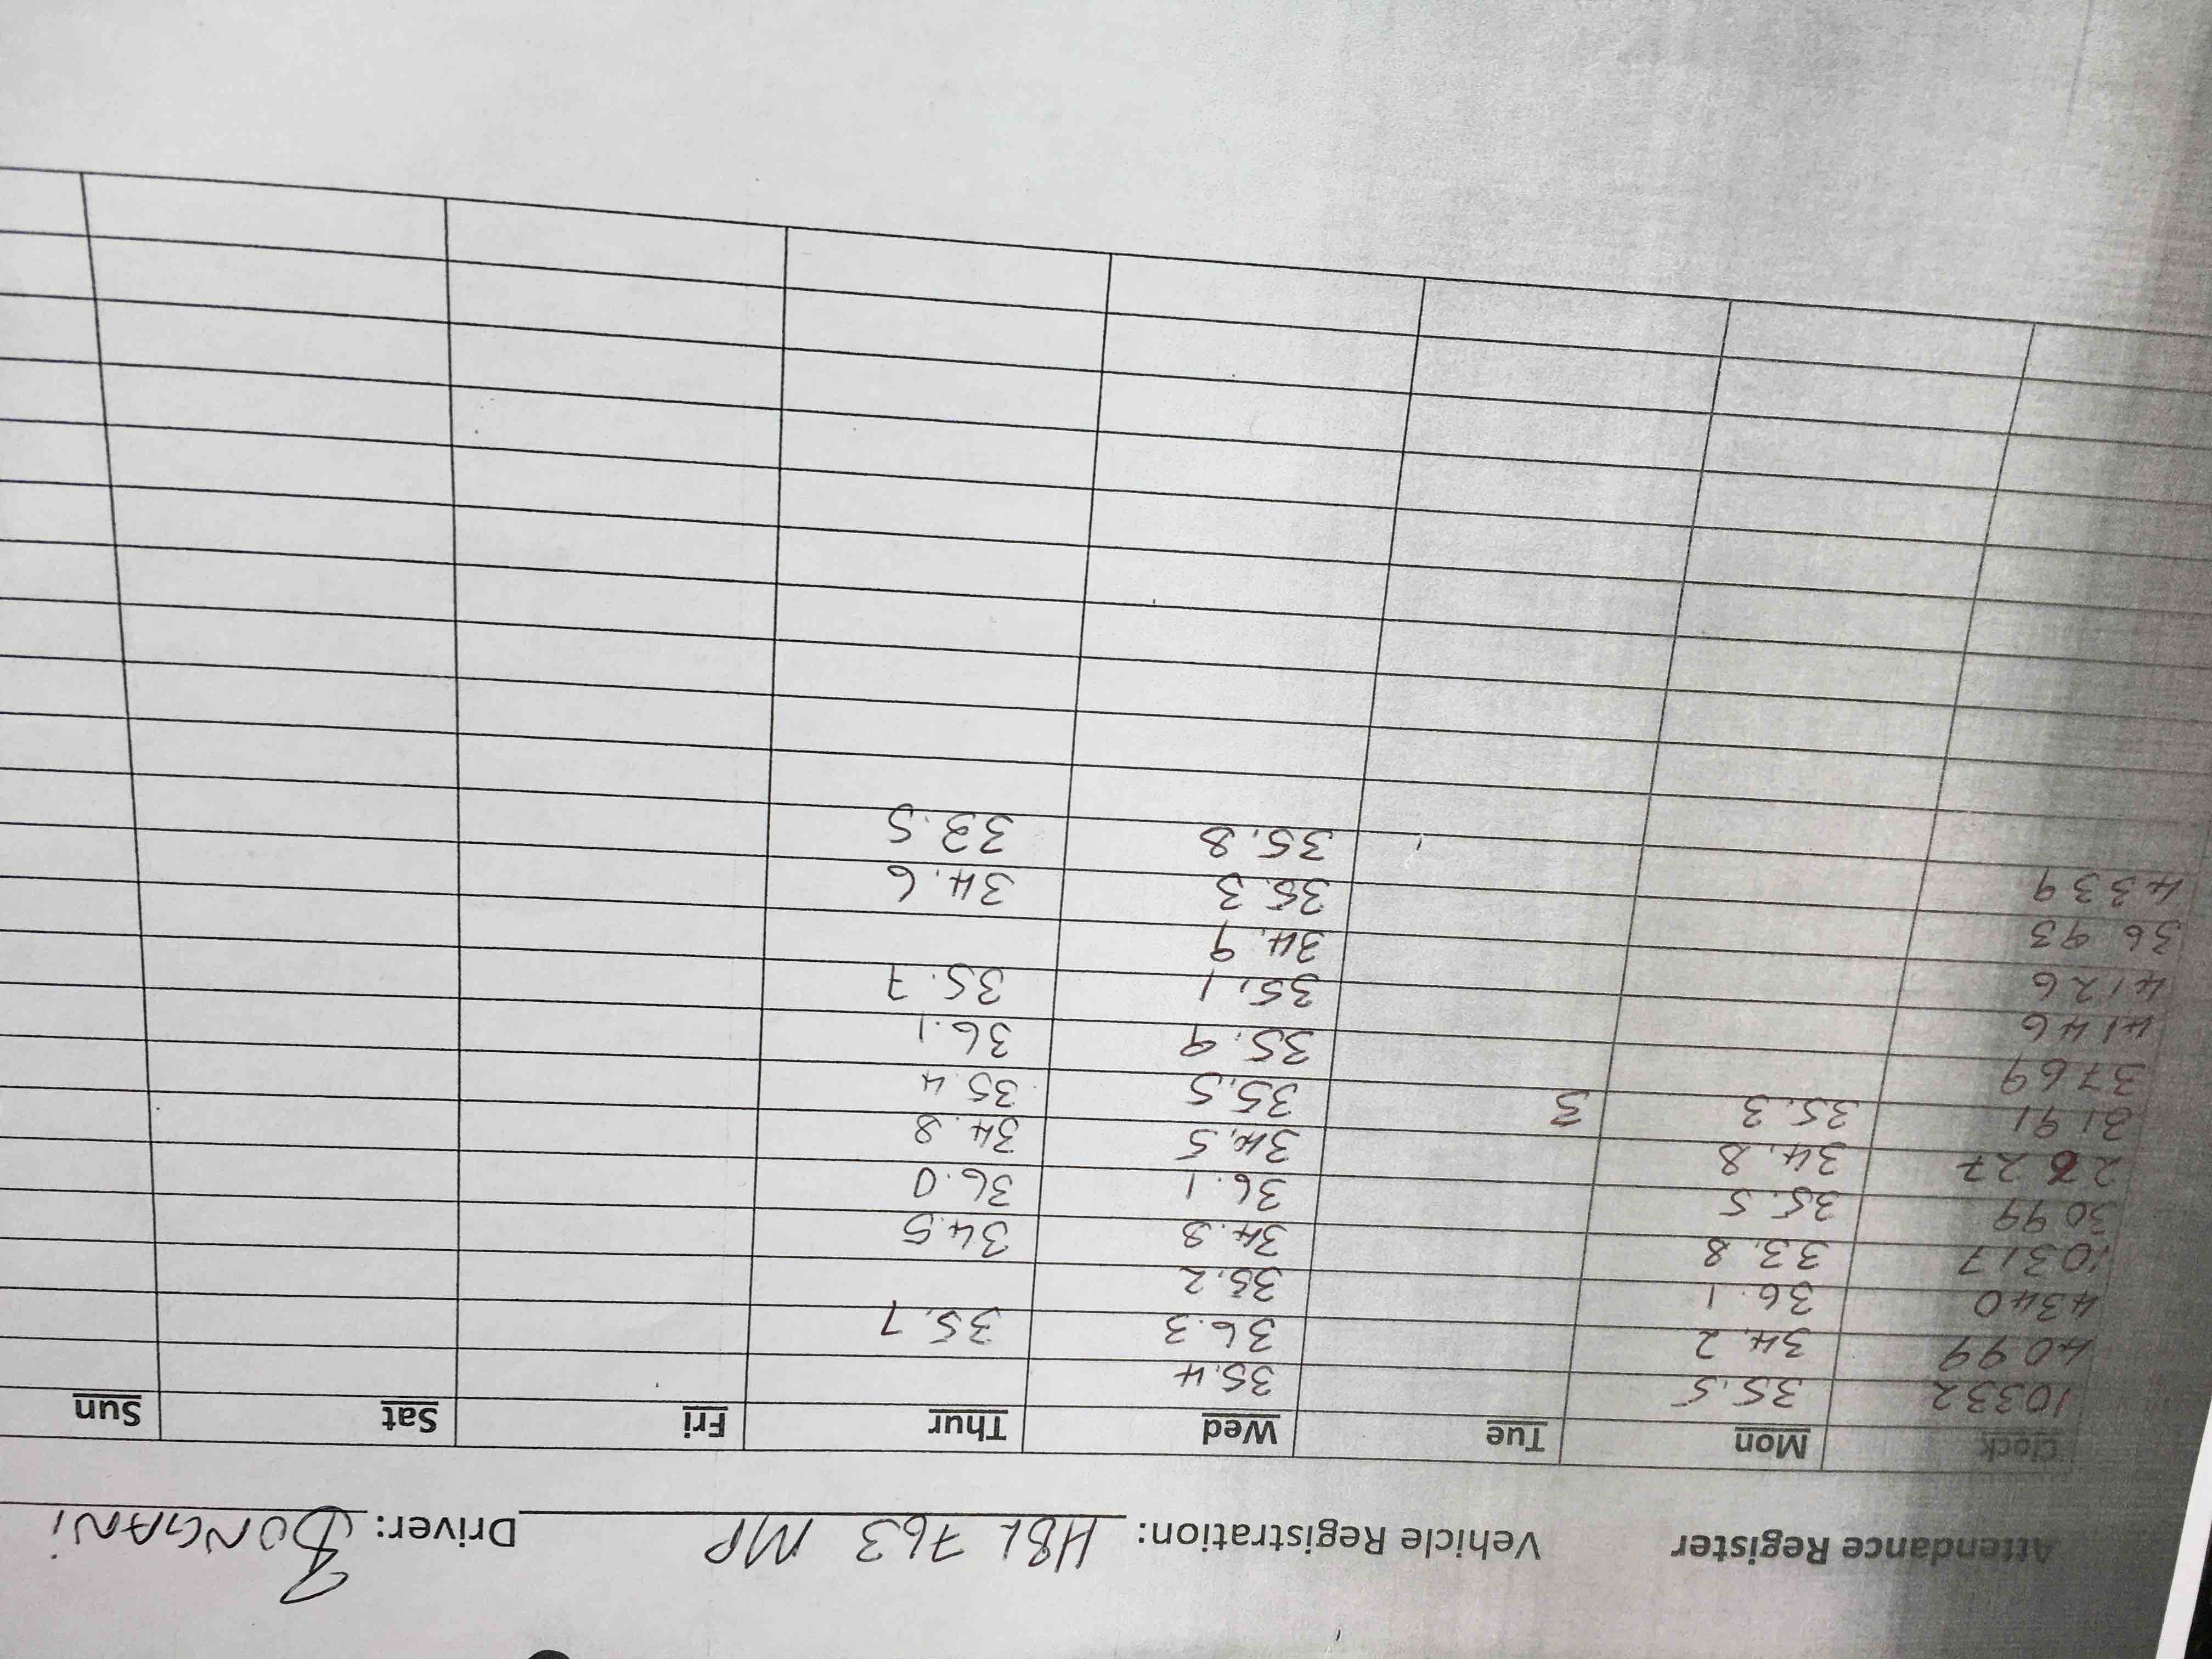 Attendance Register Vehicle Registration: HBL 763 MP Driver: BONGANI
Clock Mon Tue Wed Thur Fri Sat Sun
10332 35.5 35.4
4099 34.2 36.3 35.7
4340 36.1 35.2
10317 33.8 34.8 34.5
3099 35.5 36.1 36.0
2627 34.8 34.5 34.8
3191 35.3 3 35.5 35.4
3769 35.9 36.1
4146 35.1 35.7
4126 34.9
3693 35.3 34.6
4339 35.8 33.5